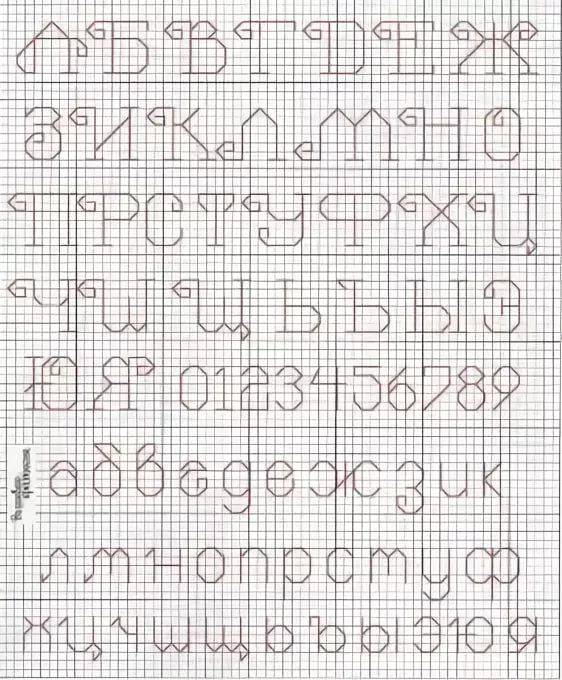 А Б В Г Д Е Ж
З И К Л М Н О
П Р С Т У Ф Х Ц
Ч Ш Щ Ь Ъ Ы Э
Ю Я 0 1 2 3 4 5 6 7 8 9
а б в г д е ж з и к
л м н о п р с т у ф
х ц ч ш щ ь ъ ы э ю я